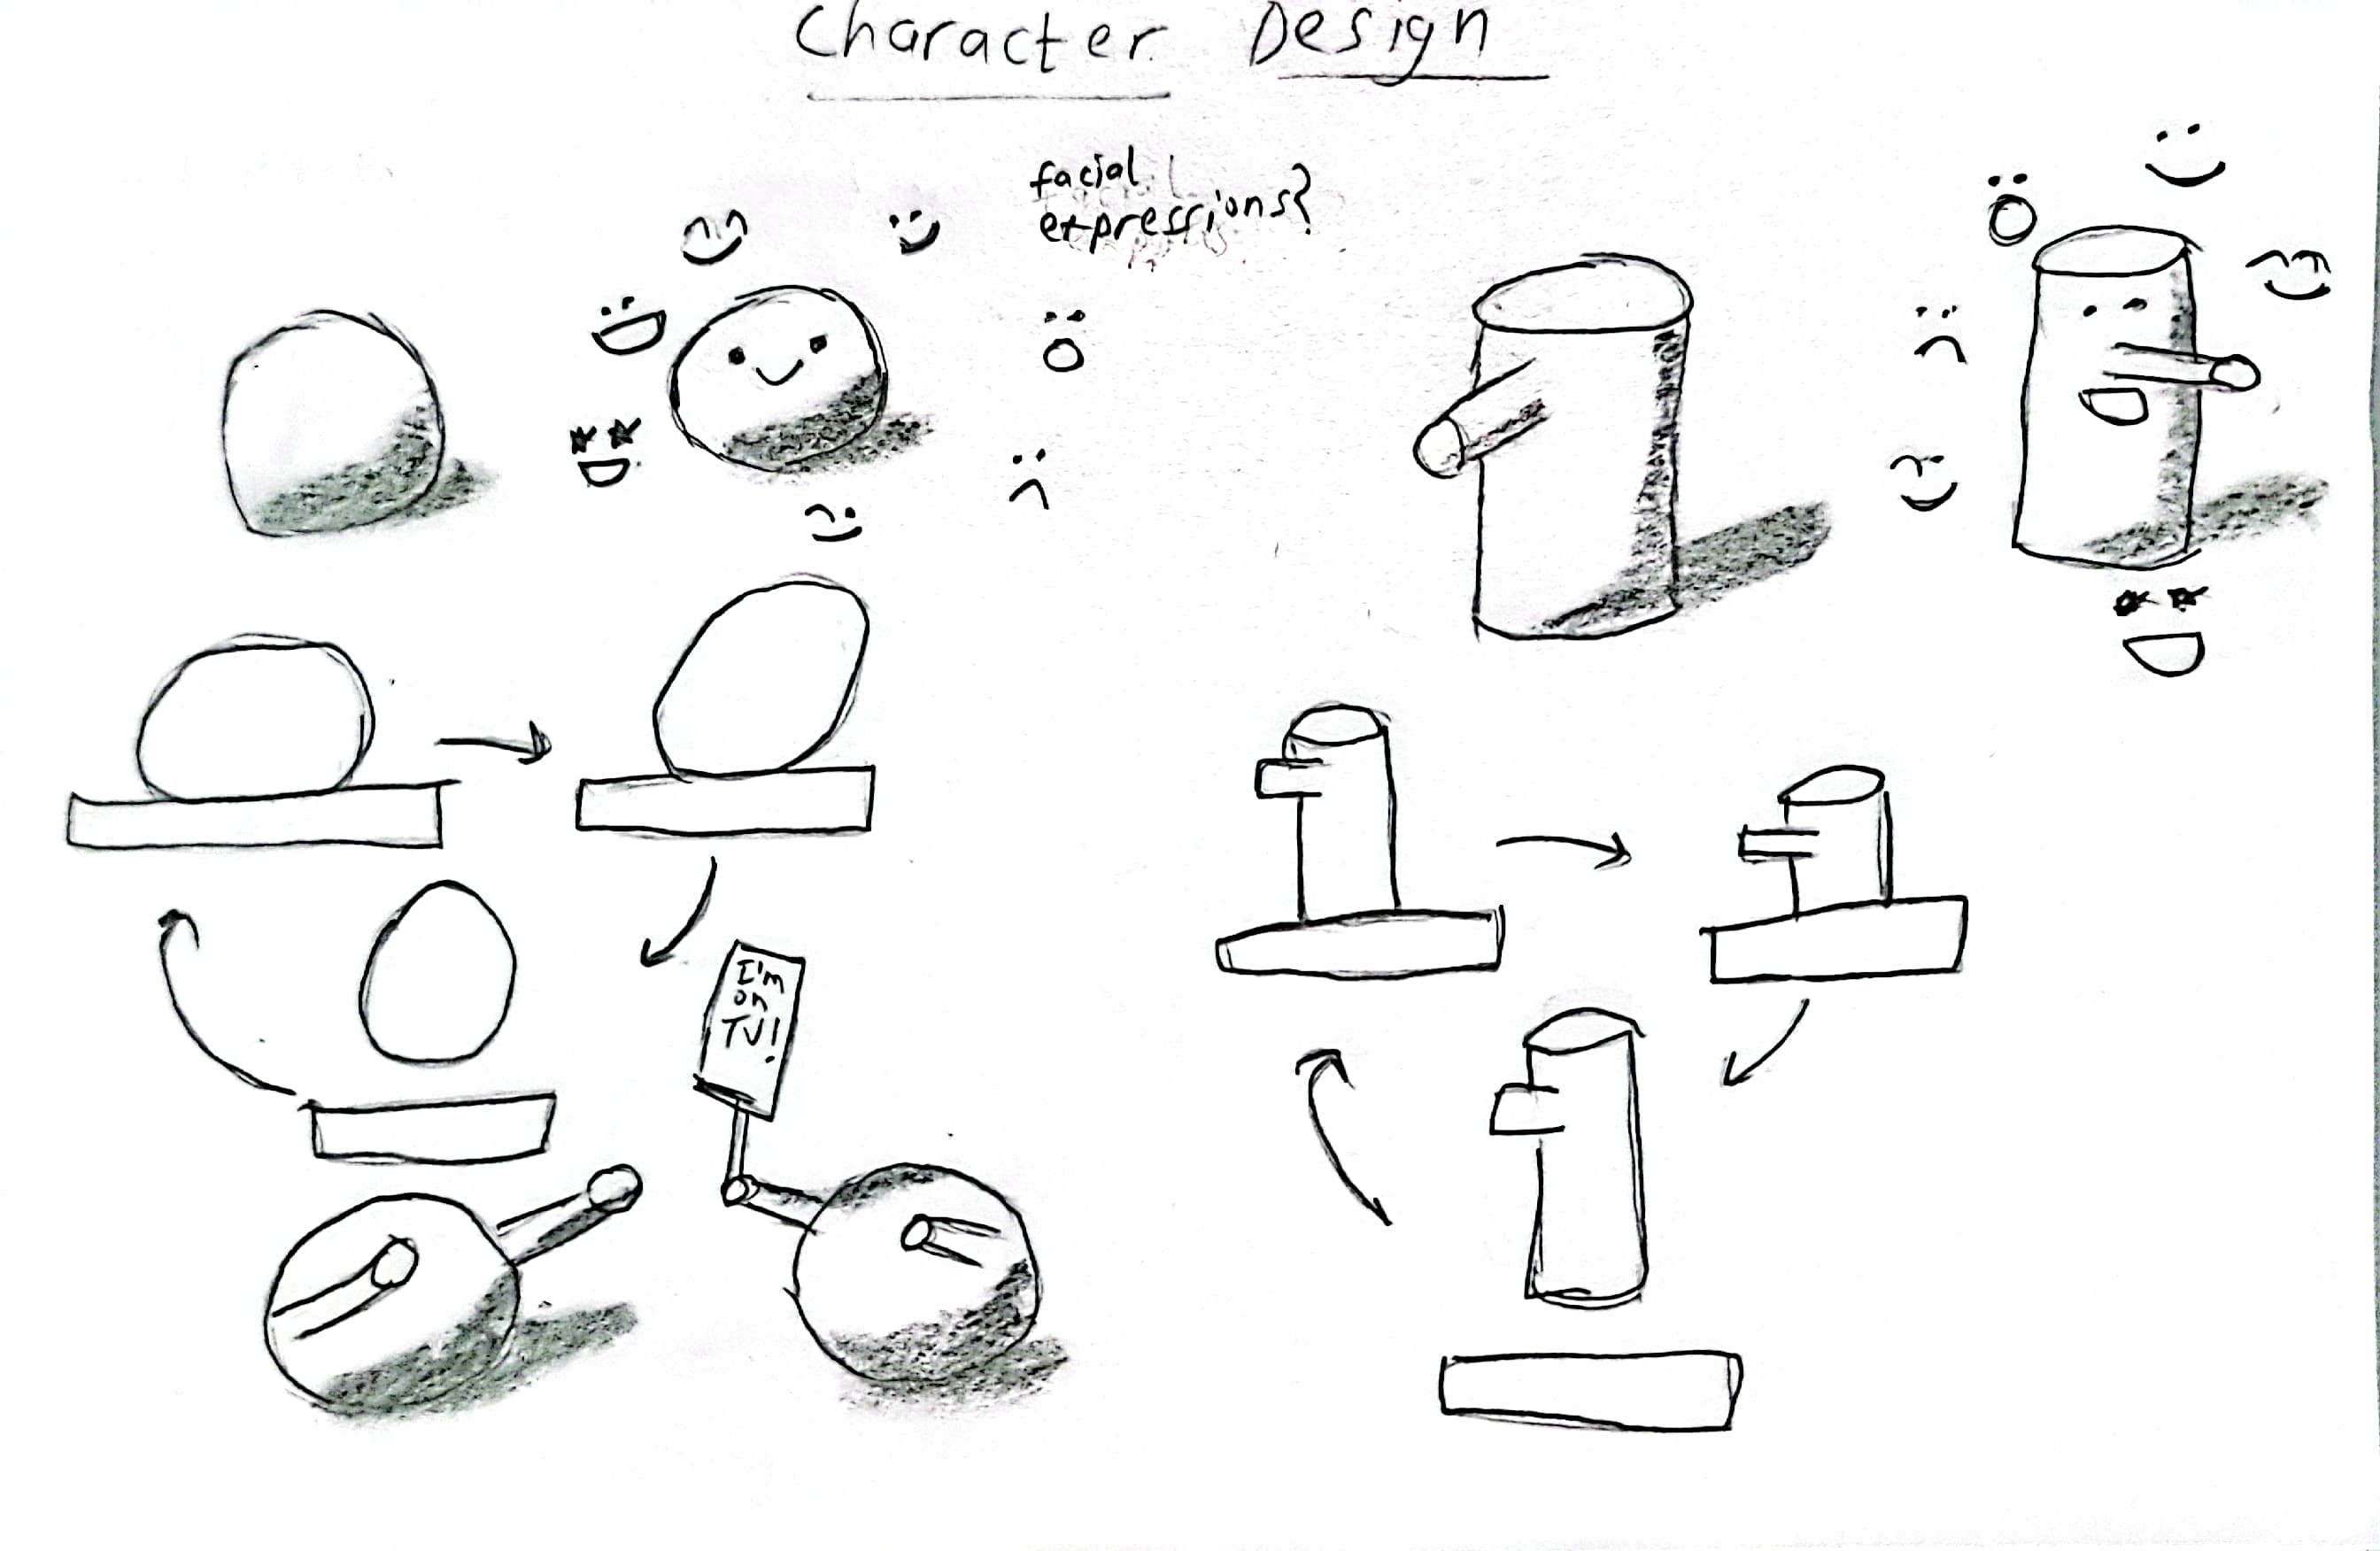 Character Design
facial
expressions?
I'm
on
TV!